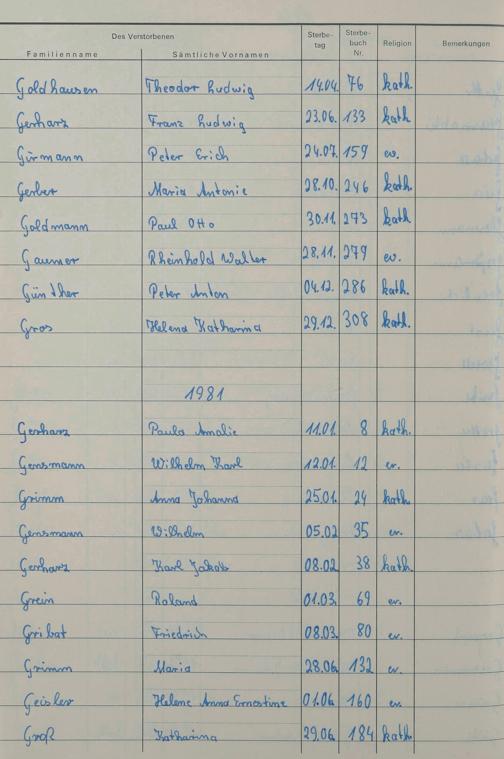 Des Verstorbenen Sterbe- tag Sterbe- buch Nr. Religion Bemerkungen
Familienname Sämtliche Vornamen
Goldhausen Theodor Ludwig 14.04. 76 kath.
Gerharz Franz Ludwig 23.06. 133 kath
Gürmann Peter Erich 24.07. 159 ev.
Gerber Maria Antonie 28.10. 246 kath
Goldmann Paul Otto 30.11. 273 kath
Gaumer Rheinhold Walter 28.11. 279 ev.
Günther Peter Anton 04.12. 286 kath.
Gros Helena Katharina 29.12. 308 kath.
1981
Gerharz Paula Amalie 11.01. 8 kath.
Gensmann Wilhelm Karl 12.01. 12 ev.
Grimm Anna Johanna 25.01. 24 kath
Gensmann Wilhelm 05.02 35 ev.
Gerharz Karl Jakob 08.02 38 kath.
Grein Roland 01.03. 69 ev.
Gribat Friedrich 08.03. 80 ev.
Grimm Maria 28.06. 132 ev.
Geisler Helene Anna Ernestine 01.06. 160 ev.
Groß Katharina 29.06. 184 kath.